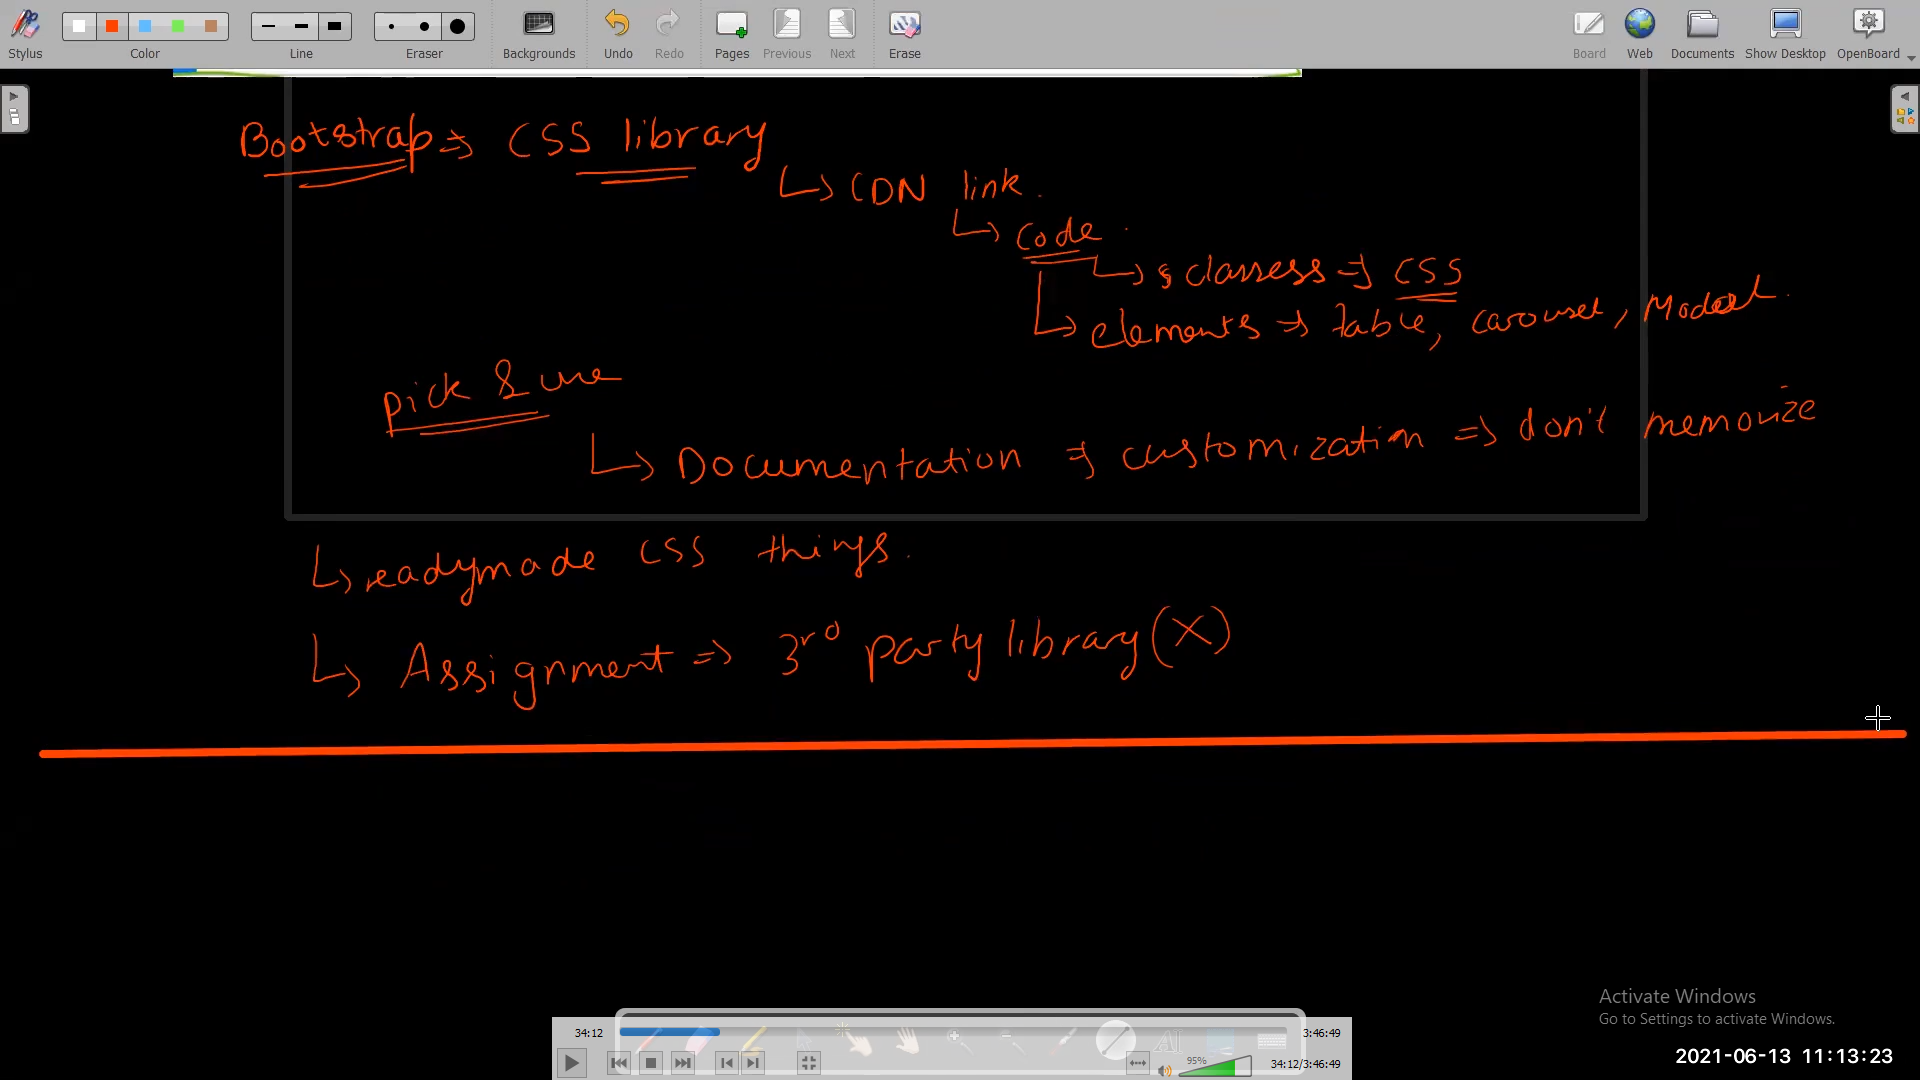 Stylus Color Line Eraser Backgrounds Undo Redo Pages Previous Next Erase Board Web Documents Show Desktop OpenBoard
Bootstrap => CSS library
↳ CDN link.
↳ code.
↳ classess => CSS
↳ elements => table, carousel, Modal.
pick & use
↳ Documentation => customization => don't memorize
↳ readymade CSS things.
↳ Assignment => 3rd party library (X)
Activate Windows
Go to Settings to activate Windows.
34:12 3:46:49
95% 34:12/3:46:49
2021-06-13 11:13:23